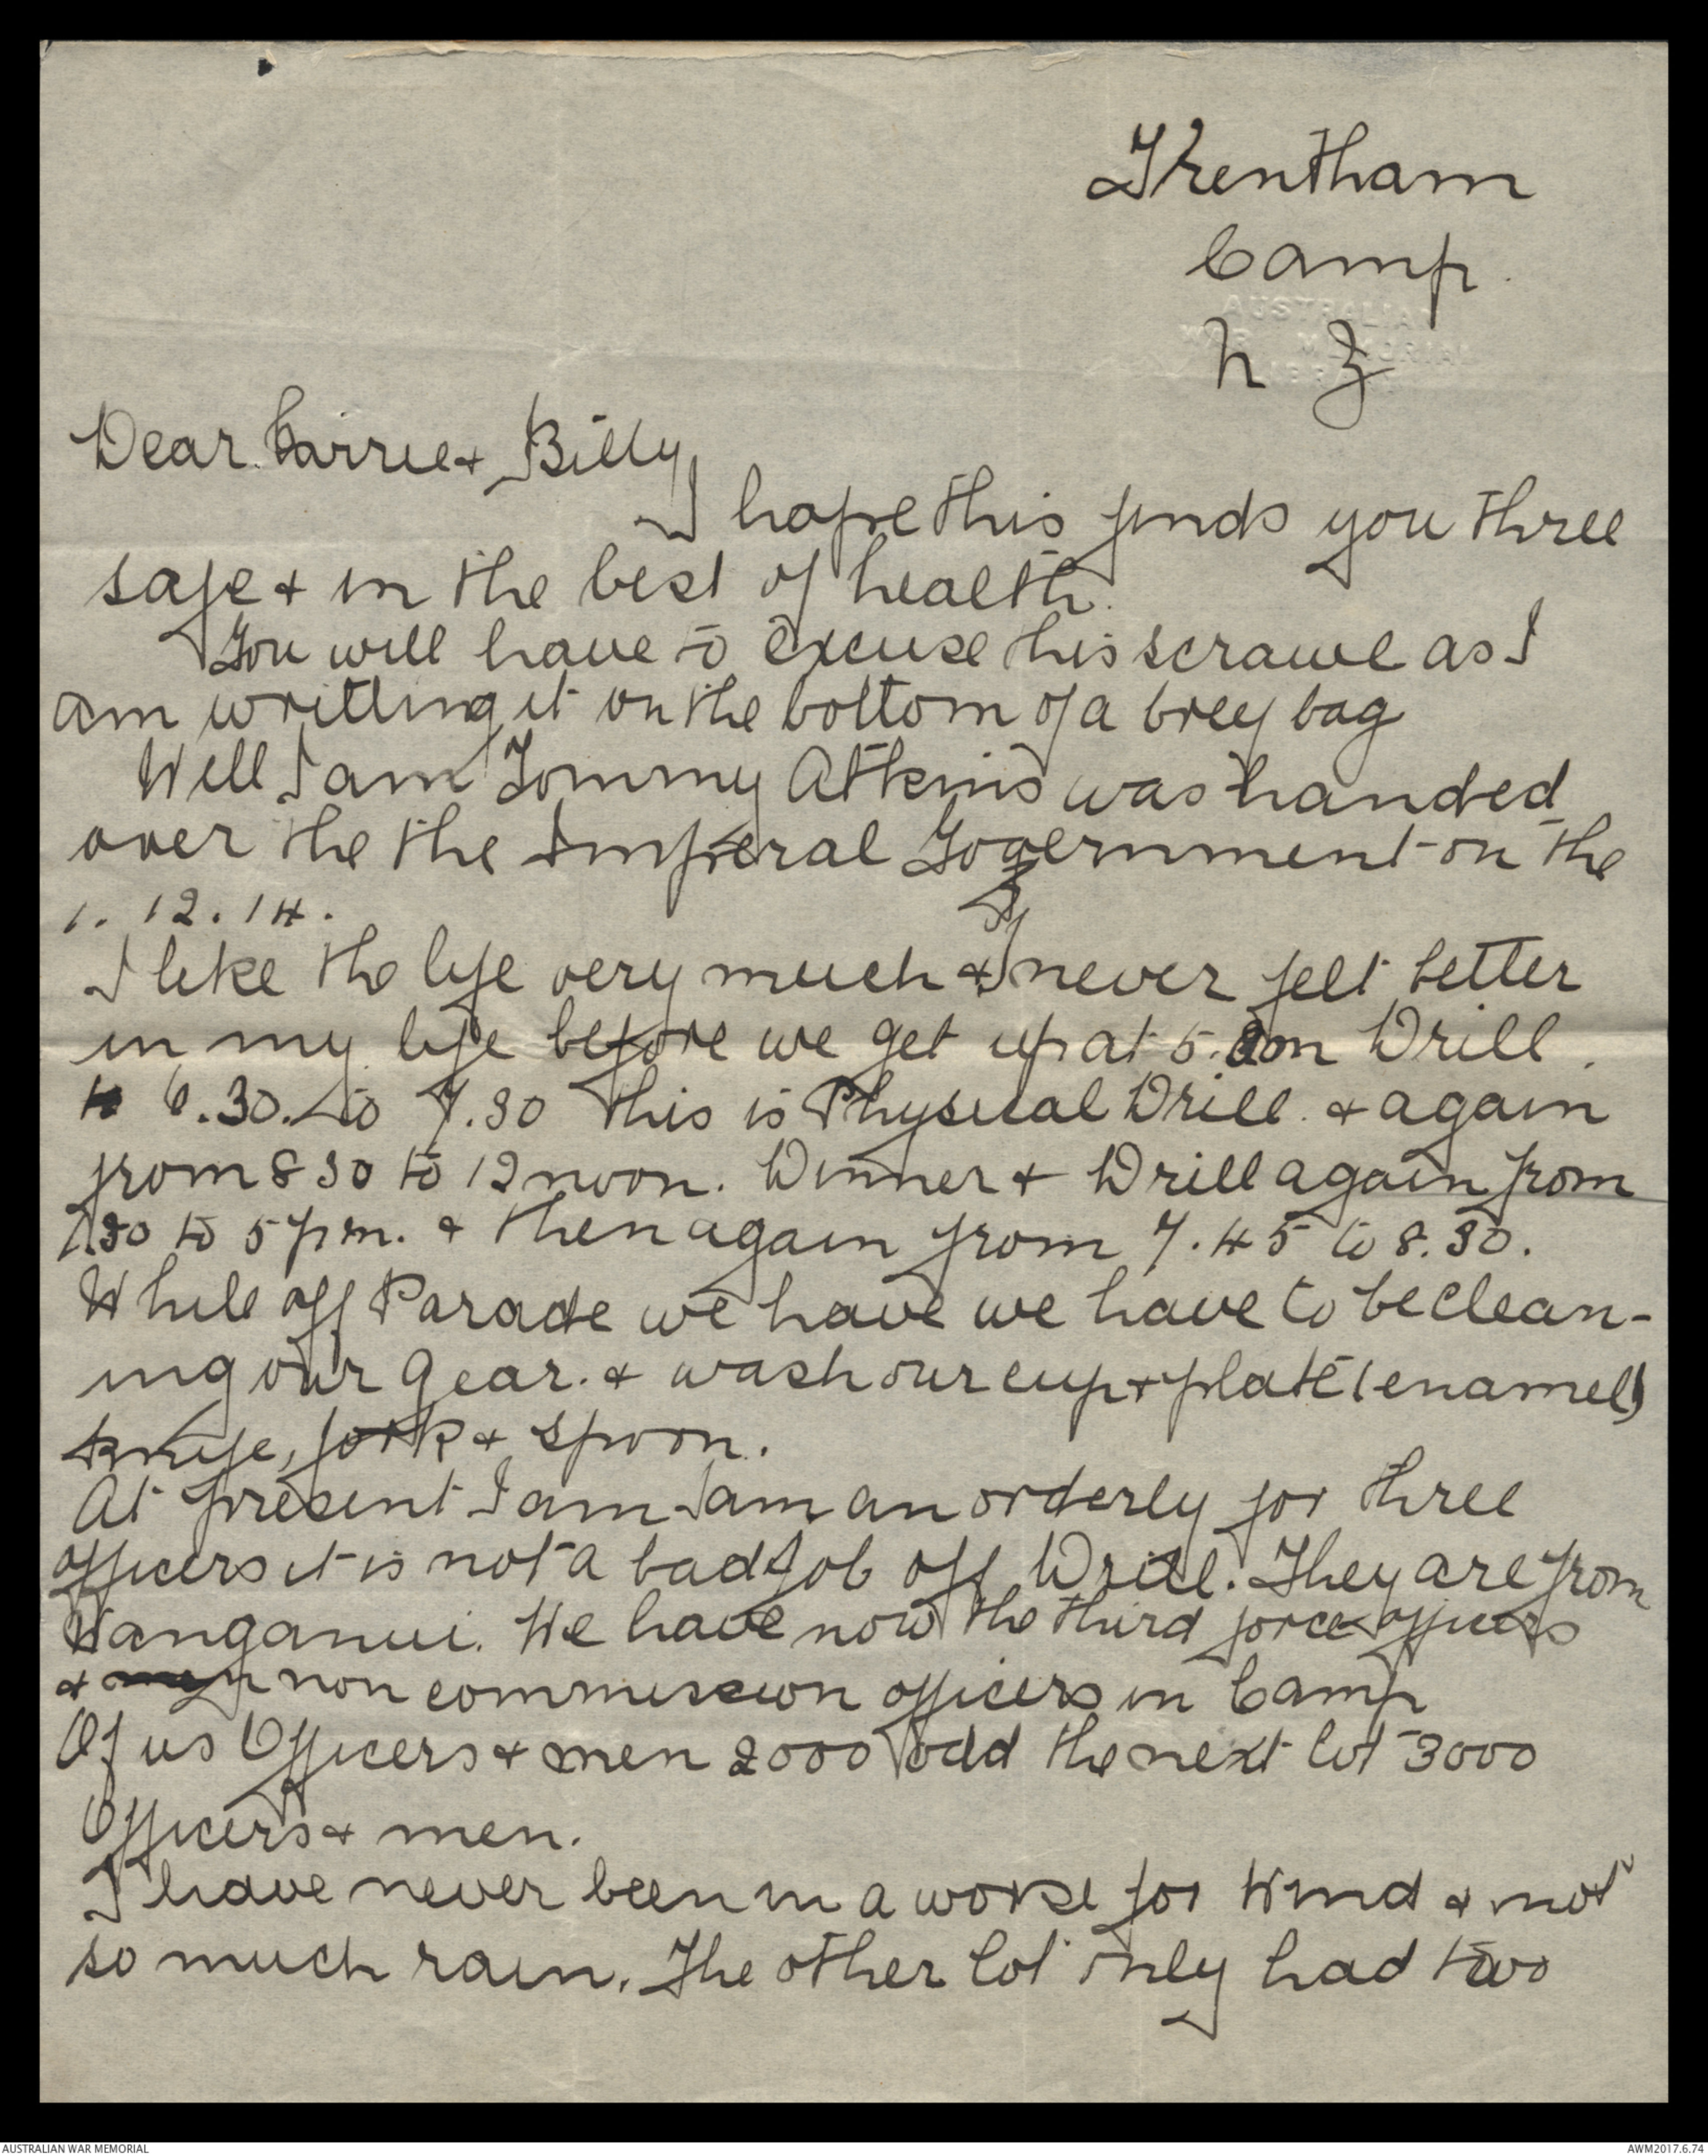 Trentham
Camp.
N Z
AUSTRALIAN
WAR MEMORIAL
Dear Carrie & Billy
I hope this finds you three
safe & in the best of health.
You will have to excuse this scrawl as I
am writting it on the bottom of a brey bag
Well I am Tommy Atkins was handed
over the the Imperal Government on the
1. 12. 14.
I like the life very much & I never felt better
in my life before we get up at 5. am Drill.
6.30. to 7.30 This is Physical Drill. & again
from 8 30 to 12 noon. Dinner & Drill again from
1.30 to 5 pm. & then again from 7.45 to 8.30.
While off Parade we have we have to be clean-
ing our gear. & wash our cup & plate (enamel)
knife, fork & spoon.
At present I am I am an orderly for three
officers it is not a bad job off Drill. They are from
Wanganui. We have now the third force officers
& non commission officers in Camp
Of us Officers & men 2000 odd the next lot 3000
Officers & men.
I have never been in a worse for wind & not
so much rain. The other lot only had two
AUSTRALIAN WAR MEMORIAL
AWM2017.6.74